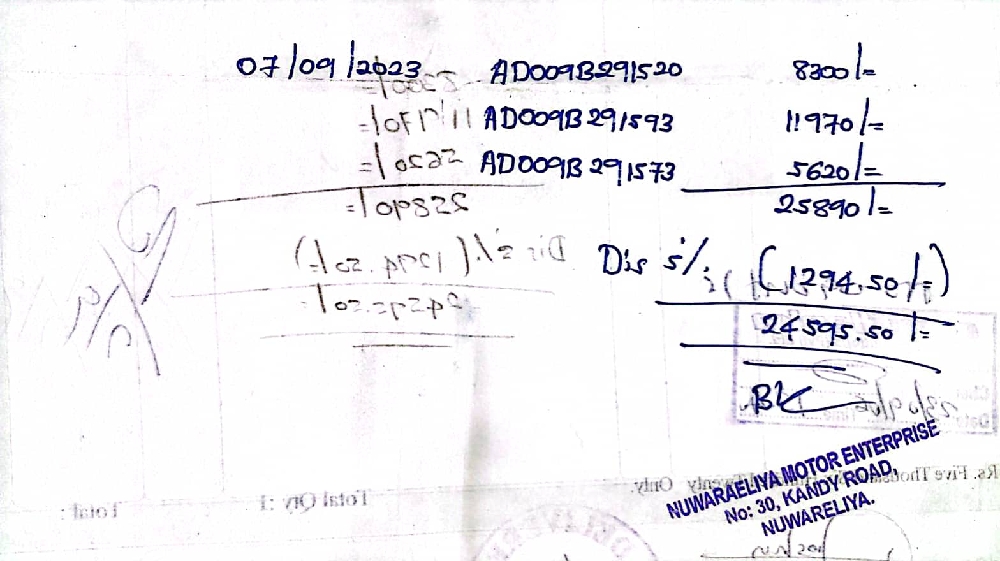 07/09/2023 AD009B291520 8300/=
AD009B291593 11970/=
AD009B291573 5620/=
25890/=
Dis 5%. (1294.50/=)
24595.50/=
NUWARAELIYA MOTOR ENTERPRISE
No: 30, KANDY ROAD,
NUWARELIYA.
Rs. Five Only.
Total Qty : 1
Total :